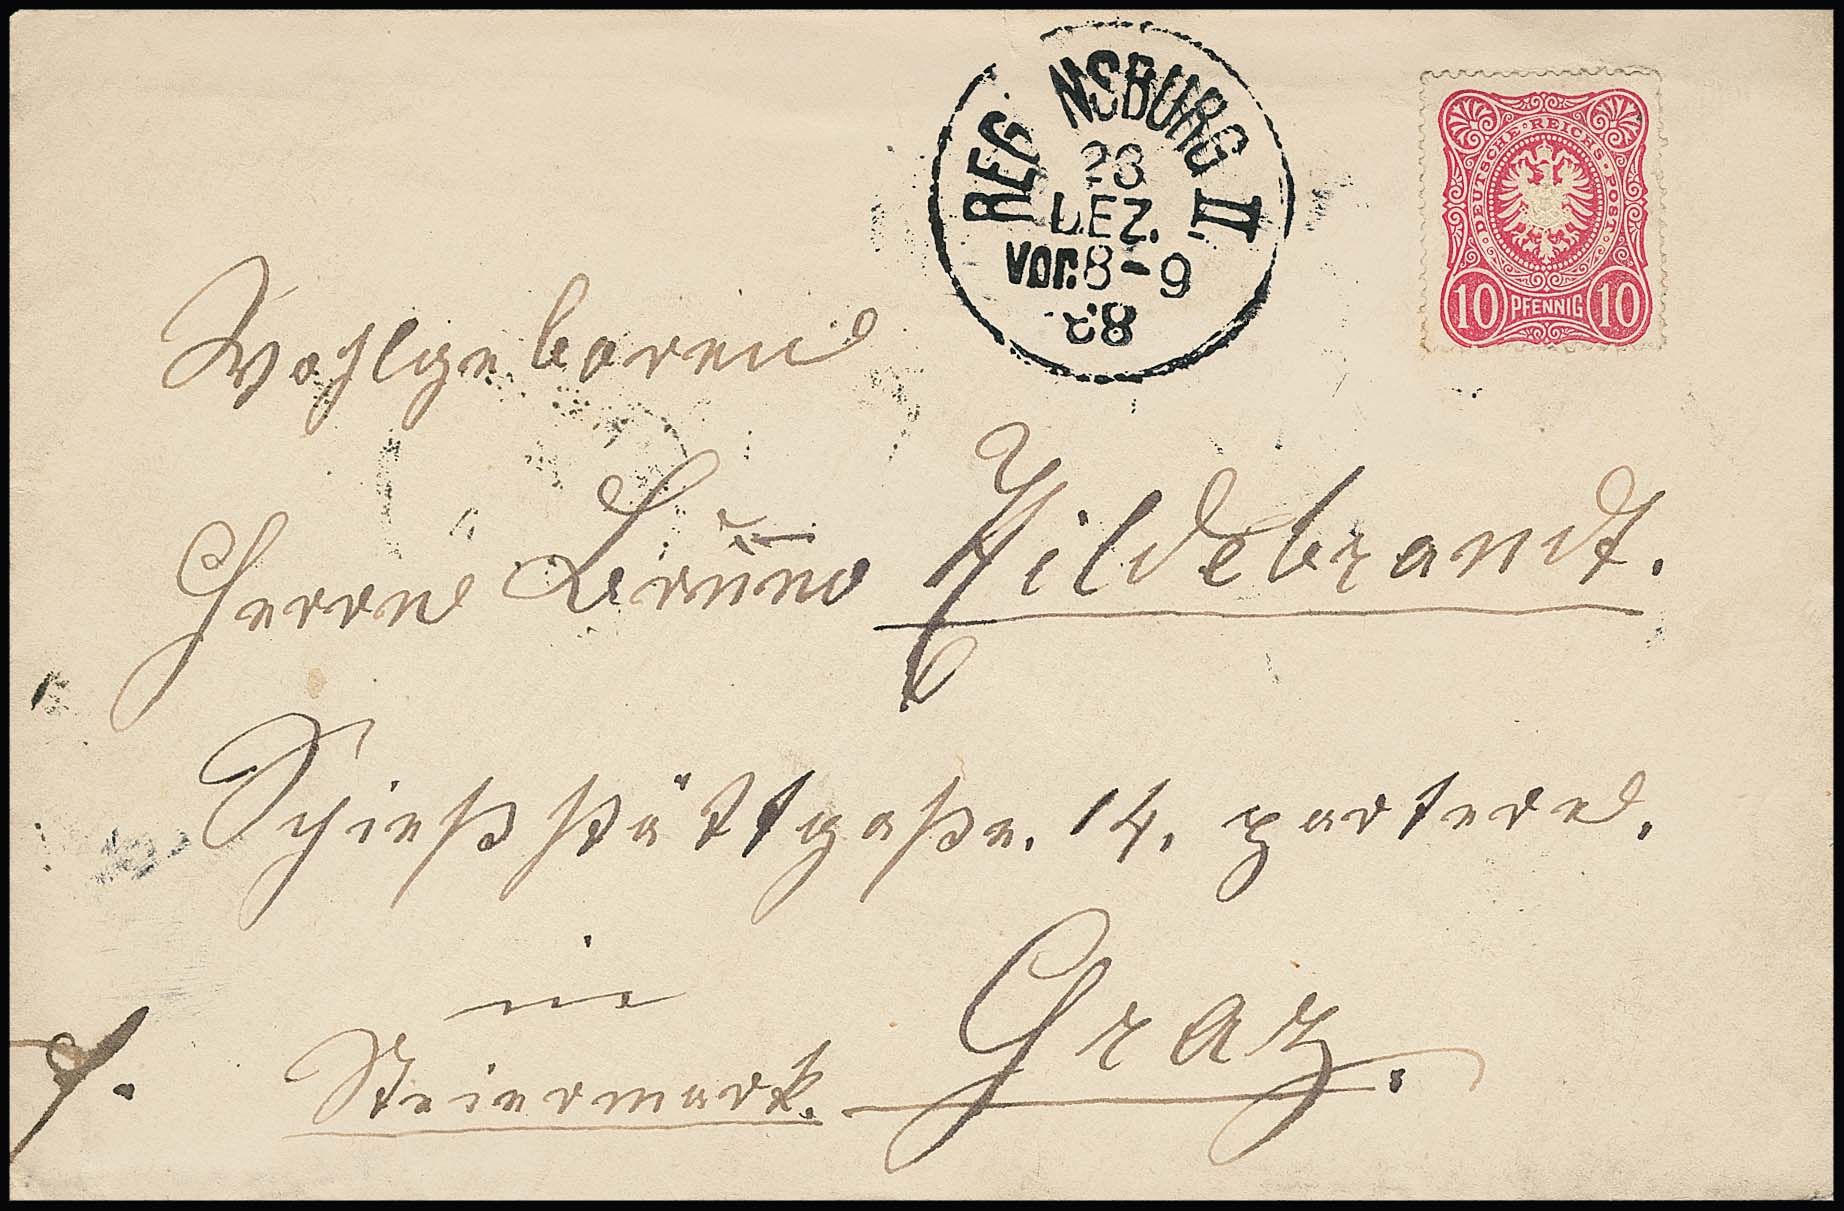 REGENSBURG II
23
DEZ.
Vor. 8-9
82
DEUTSCHE·REICHS-POST
10 PFENNIG 10
Wohlgeboren
Herrn Bruno Hildebrandt.
Schießstättgaße. 14. parterre.
in Graz.
Steiermark.